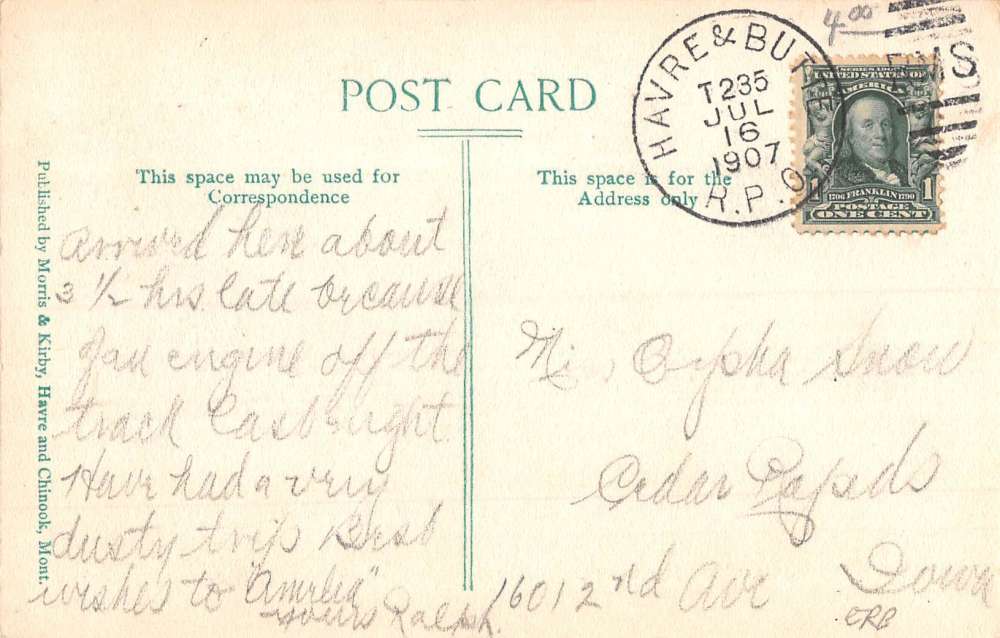 4.00
HAVRE & BUTTE
T235
JUL
16
1907
R.P.O.
RMS
SERIES 1902
UNITED STATES OF
AMERICA
1706 FRANKLIN 1790
POSTAGE
1 ONE CENT 1
POST CARD
This space may be used for
Correspondence
This space is for the
Address only
Published by Morris & Kirby, Havre and Chinook, Mont.
Arrived here about
3 1/2 hrs late because
of an engine off the
track last night.
Have had a very
dusty trip Best
wishes to "Amelia"
yours Ralph.
Miss Orpha Snow
Cedar Rapids
Iowa
1601 2nd Ave
ERB